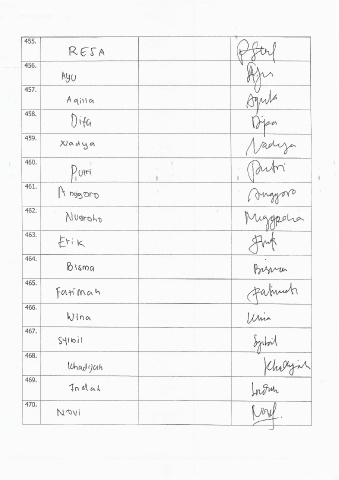 455. RESA
456. Ayu Ayu
457. Aqilla Aquila
458. Difa Dipa
459. Nadya Nadya
460. Putri Putri
461. Anggoro Anggoro
462. Nugroho
463. Erik
464. Bisma Bisma
465. Fatimah Fatimah
466. Wina Wina
467. Sybil Sybil
468. Khadijah Khadijah
469. Indah Indah
470. Novi Novi